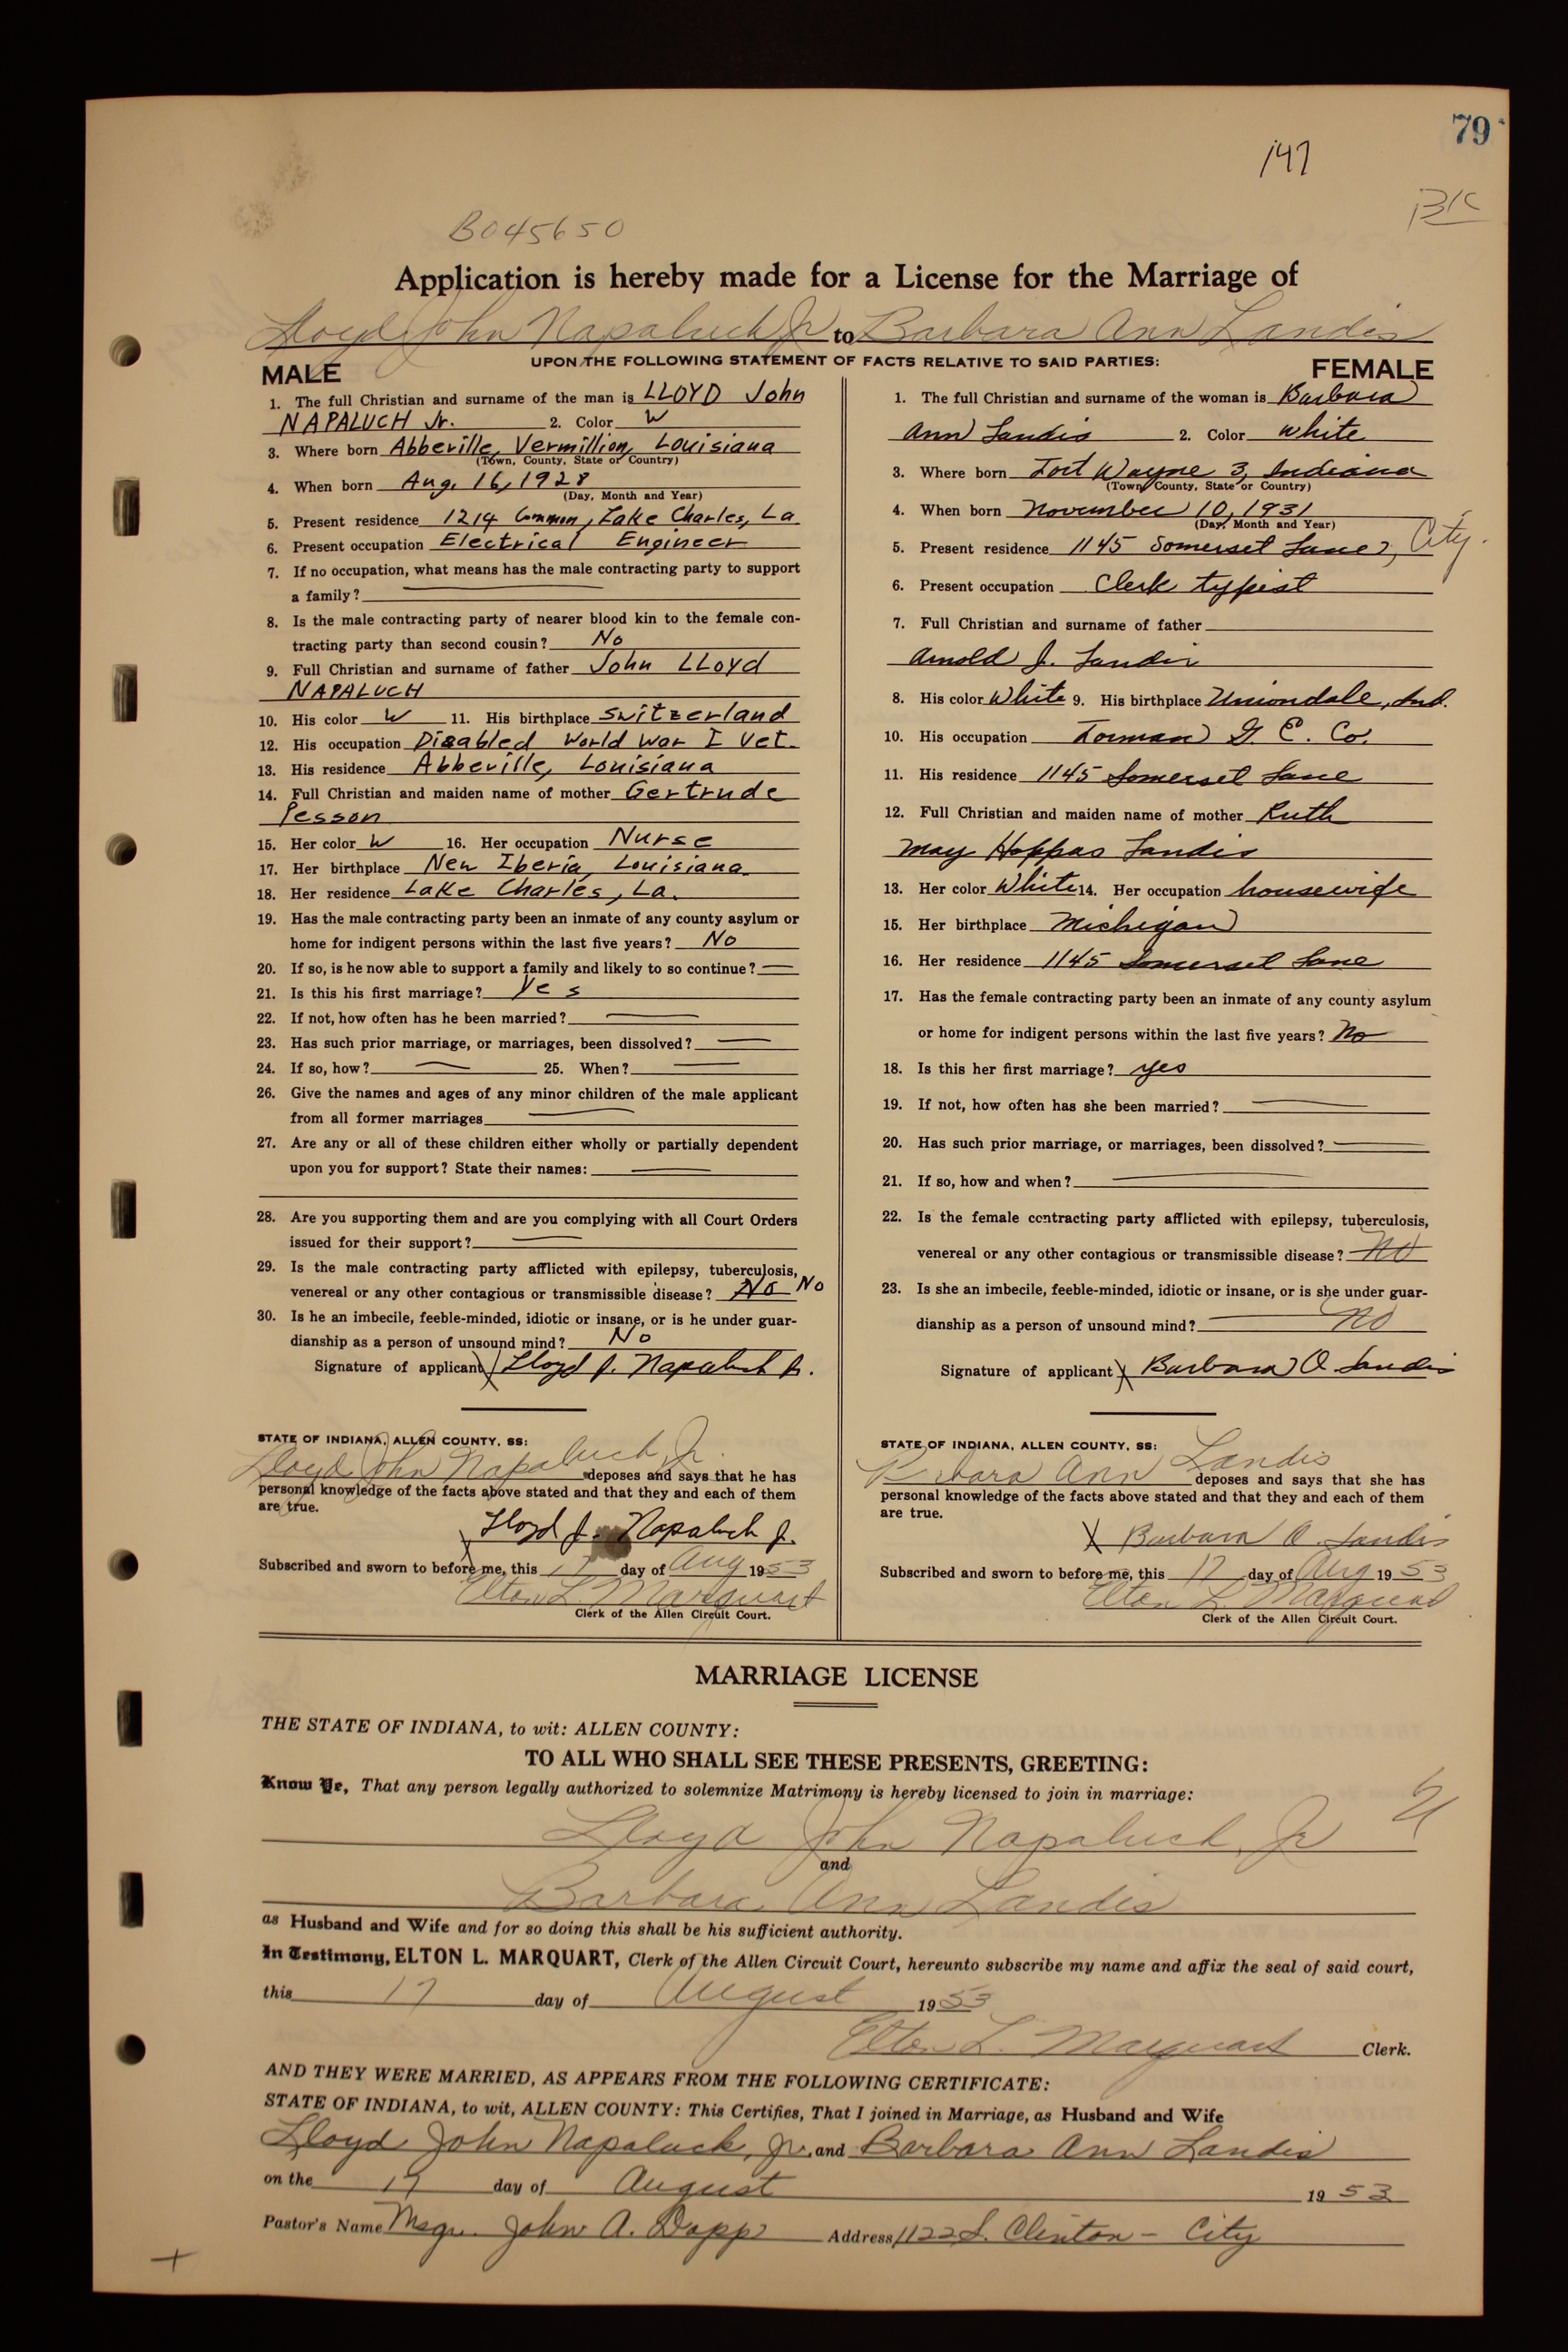 79
147
B045650
Application is hereby made for a License for the Marriage of
Lloyd John Napaluch Jr to Barbara Ann Landis
UPON THE FOLLOWING STATEMENT OF FACTS RELATIVE TO SAID PARTIES:
MALE
1. The full Christian and surname of the man is LLOYD John
NAPALUCH Jr. 2. Color W
3. Where born Abbeville, Vermillion, Louisiana
(Town, County, State or Country)
4. When born Aug. 16, 1928
(Day, Month and Year)
5. Present residence 1214 Common, Lake Charles, La
6. Present occupation Electrical Engineer
7. If no occupation, what means has the male contracting party to support
a family?
8. Is the male contracting party of nearer blood kin to the female con-
tracting party than second cousin? No
9. Full Christian and surname of father John LLoyd
NAPALUCH
10. His color W 11. His birthplace Switzerland
12. His occupation Disabled World War I Vet.
13. His residence Abbeville, Louisiana
14. Full Christian and maiden name of mother Gertrude
Pesson
15. Her color W 16. Her occupation Nurse
17. Her birthplace New Iberia, Louisiana
18. Her residence Lake Charles, La.
19. Has the male contracting party been an inmate of any county asylum or
home for indigent persons within the last five years? No
20. If so, is he now able to support a family and likely to so continue? —
21. Is this his first marriage? Yes
22. If not, how often has he been married? —
23. Has such prior marriage, or marriages, been dissolved? —
24. If so, how? — 25. When? —
26. Give the names and ages of any minor children of the male applicant
from all former marriages —
27. Are any or all of these children either wholly or partially dependent
upon you for support? State their names: —
28. Are you supporting them and are you complying with all Court Orders
issued for their support? —
29. Is the male contracting party afflicted with epilepsy, tuberculosis,
venereal or any other contagious or transmissible disease? No No
30. Is he an imbecile, feeble-minded, idiotic or insane, or is he under guar-
dianship as a person of unsound mind? No
Signature of applicant X Lloyd J. Napaluch Jr.
STATE OF INDIANA, ALLEN COUNTY, SS:
Lloyd John Napaluch, Jr. deposes and says that he has
personal knowledge of the facts above stated and that they and each of them
are true.
X Lloyd J. Napaluch Jr.
Subscribed and sworn to before me, this 17 day of Aug 1953
Elton L. Marquart
Clerk of the Allen Circuit Court.
FEMALE
1. The full Christian and surname of the woman is Barbara
Ann Landis 2. Color White
3. Where born Fort Wayne 3, Indiana
(Town, County, State or Country)
4. When born November 10, 1931
(Day, Month and Year)
5. Present residence 1145 Somerset Lane, City.
6. Present occupation Clerk typist
7. Full Christian and surname of father
Arnold J. Landis
8. His color White 9. His birthplace Uniondale, Ind.
10. His occupation Forman G. E. Co.
11. His residence 1145 Somerset Lane
12. Full Christian and maiden name of mother Ruth
May Hoppas Landis
13. Her color White 14. Her occupation housewife
15. Her birthplace Michigan
16. Her residence 1145 Somerset Lane
17. Has the female contracting party been an inmate of any county asylum
or home for indigent persons within the last five years? No
18. Is this her first marriage? yes
19. If not, how often has she been married? —
20. Has such prior marriage, or marriages, been dissolved? —
21. If so, how and when? —
22. Is the female contracting party afflicted with epilepsy, tuberculosis,
venereal or any other contagious or transmissible disease? No
23. Is she an imbecile, feeble-minded, idiotic or insane, or is she under guar-
dianship as a person of unsound mind? No
Signature of applicant X Barbara A Landis
STATE OF INDIANA, ALLEN COUNTY, SS:
Barbara Ann Landis deposes and says that she has
personal knowledge of the facts above stated and that they and each of them
are true.
X Barbara A. Landis
Subscribed and sworn to before me, this 17 day of Aug 1953
Elton L. Marquart
Clerk of the Allen Circuit Court.
MARRIAGE LICENSE
THE STATE OF INDIANA, to wit: ALLEN COUNTY:
TO ALL WHO SHALL SEE THESE PRESENTS, GREETING:
Know Ye, That any person legally authorized to solemnize Matrimony is hereby licensed to join in marriage:
Lloyd John Napaluch, Jr
and
Barbara Ann Landis
as Husband and Wife and for so doing this shall be his sufficient authority.
In Testimony, ELTON L. MARQUART, Clerk of the Allen Circuit Court, hereunto subscribe my name and affix the seal of said court,
this 17 day of August 1953
Elton L. Marquart Clerk.
AND THEY WERE MARRIED, AS APPEARS FROM THE FOLLOWING CERTIFICATE:
STATE OF INDIANA, to wit, ALLEN COUNTY: This Certifies, That I joined in Marriage, as Husband and Wife
Lloyd John Napaluch, Jr. and Barbara Ann Landis
on the 17 day of August 1953
Pastor's Name Msgr. John A. Dapp Address 1122 S. Clinton - City